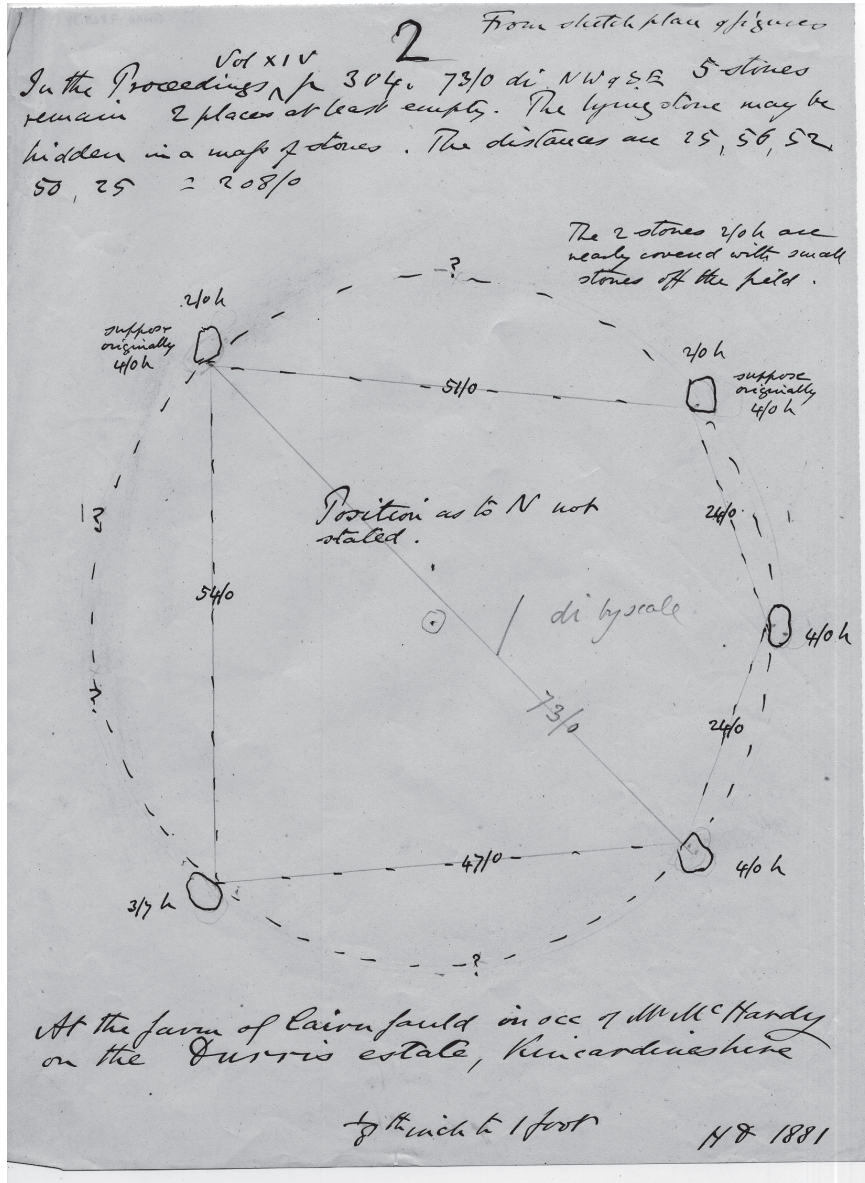 From sketch plan of figures
2
Vol XIV
In the Proceedings ^ p 304. 73/0 di NW & SE 5 stones
remain 2 places at least empty. The lying stone may be
hidden in a mass of stones. The distances are 25, 56, 52
50, 25 = 208/0
The 2 stones 2/0 h are
nearly covered with small
stones off the field.
?
2/0 h
suppose
originally
4/0 h
2/0 h
suppose
originally
4/0 h
51/0
Position as to N not
stated.
24/0
?
54/0
di by scale
4/0 h
?
73/0
24/0
47/0
4/0 h
3/7 h
?
At the farm of Cairnfauld in occ of Mr McHardy
on the Durris estate, Kincardineshire
1/8th inch to 1 foot
HD 1881